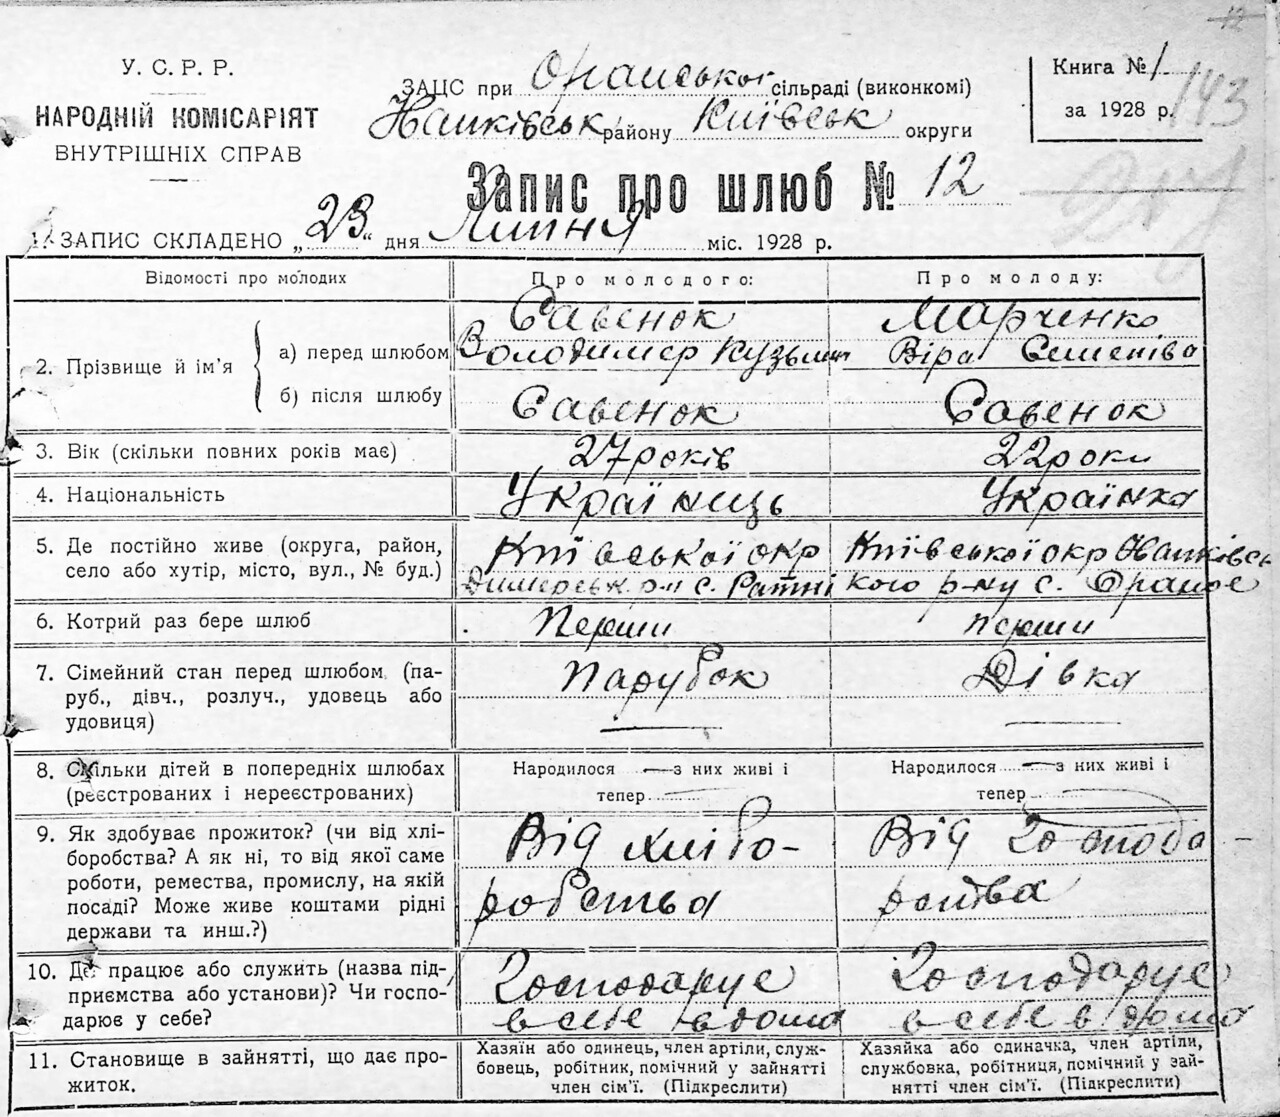 У. С. Р. Р.
НАРОДНІЙ КОМІСАРІЯТ
ВНУТРІШНІХ СПРАВ
ЗАЦС при Оранської сільраді (виконкомі)
району Київськ округи
Книга № 1
за 1928 р.
143
Запис про шлюб № 12
1. ЗАПИС СКЛАДЕНО „23“ дня Липня міс. 1928 р.
Відомості про молодих
Про молодого:
Про молоду:
2. Прізвище й ім’я
а) перед шлюбом
Савенок
Володимер Кузьмич
Марченко
Віра Семенівна
б) після шлюбу
Савенок
Савенок
3. Вік (скільки повних років має)
27 років
22 роки
4. Національність
Українець
Українка
5. Де постійно живе (округа, район,
село або хутір, місто, вул., № буд.)
Київської окр
Димерськ р-н с.
Київської окр
кого р-ну с. Оране
6. Котрий раз бере шлюб
Перши
перши
7. Сімейний стан перед шлюбом (па-
руб., дівч., розлуч., удовець або
удовиця)
Парубок
Дівка
8. Скільки дітей в попередніх шлюбах
(реєстрованих і нереєстрованих)
Народилося — з них живі і
тепер
Народилося — з них живі і
тепер
9. Як здобуває прожиток? (чи від хлі-
боробства? А як ні, то від якої саме
роботи, ремества, промислу, на якій
посаді? Може живе коштами рідні
держави та инш.?)
Від хлібо-
робства
Від господа-
рства
10. Де працює або служить (назва під-
приємства або установи)? Чи госпо-
дарює у себе?
Господарує
в себе вдома
Господарує
в себе вдома
11. Становище в зайнятті, що дає про-
житок.
Хазяїн або одинець, член артіли, служ-
бовець, робітник, помічний у зайнятті
член сім’ї. (Підкреслити)
Хазяйка або одиначка, член артіли,
службовка, робітниця, помічний у зай-
нятті член сім’ї. (Підкреслити)